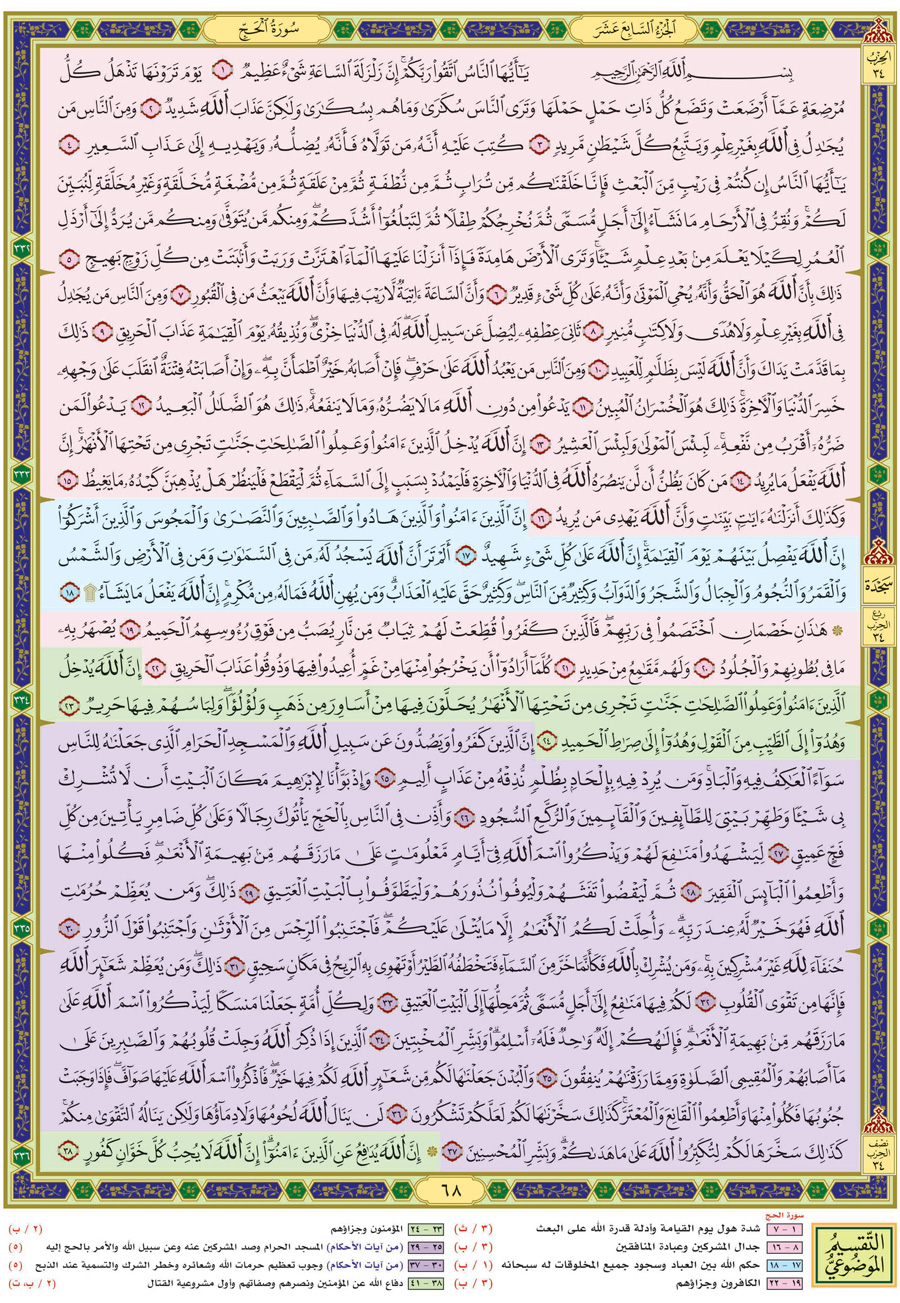 الجزء السابع عشر
سورة الحج
الحزب ٣٤
بِسْمِ اللَّهِ الرَّحْمَٰنِ الرَّحِيمِ يَا أَيُّهَا النَّاسُ اتَّقُوا رَبَّكُمْ ۚ إِنَّ زَلْزَلَةَ السَّاعَةِ شَيْءٌ عَظِيمٌ ١ يَوْمَ تَرَوْنَهَا تَذْهَلُ كُلُّ
مُرْضِعَةٍ عَمَّا أَرْضَعَتْ وَتَضَعُ كُلُّ ذَاتِ حَمْلٍ حَمْلَهَا وَتَرَى النَّاسَ سُكَارَىٰ وَمَا هُم بِسُكَارَىٰ وَلَٰكِنَّ عَذَابَ اللَّهِ شَدِيدٌ ٢ وَمِنَ النَّاسِ مَن
يُجَادِلُ فِي اللَّهِ بِغَيْرِ عِلْمٍ وَيَتَّبِعُ كُلَّ شَيْطَانٍ مَّرِيدٍ ٣ كُتِبَ عَلَيْهِ أَنَّهُ مَن تَوَلَّاهُ فَأَنَّهُ يُضِلُّهُ وَيَهْدِيهِ إِلَىٰ عَذَابِ السَّعِيرِ ٤
يَا أَيُّهَا النَّاسُ إِن كُنتُمْ فِي رَيْبٍ مِّنَ الْبَعْثِ فَإِنَّا خَلَقْنَاكُم مِّن تُرَابٍ ثُمَّ مِن نُّطْفَةٍ ثُمَّ مِنْ عَلَقَةٍ ثُمَّ مِن مُّضْغَةٍ مُّخَلَّقَةٍ وَغَيْرِ مُخَلَّقَةٍ لِّنُبَيِّنَ
لَكُمْ ۚ وَنُقِرُّ فِي الْأَرْحَامِ مَا نَشَاءُ إِلَىٰ أَجَلٍ مُّسَمًّى ثُمَّ نُخْرِجُكُمْ طِفْلًا ثُمَّ لِتَبْلُغُوا أَشُدَّكُمْ ۖ وَمِنكُم مَّن يُتَوَفَّىٰ وَمِنكُم مَّن يُرَدُّ إِلَىٰ أَرْذَلِ
الْعُمُرِ لِكَيْلَا يَعْلَمَ مِن بَعْدِ عِلْمٍ شَيْئًا ۚ وَتَرَى الْأَرْضَ هَامِدَةً فَإِذَا أَنزَلْنَا عَلَيْهَا الْمَاءَ اهْتَزَّتْ وَرَبَتْ وَأَنبَتَتْ مِن كُلِّ زَوْجٍ بَهِيجٍ ٥
ذَٰلِكَ بِأَنَّ اللَّهَ هُوَ الْحَقُّ وَأَنَّهُ يُحْيِي الْمَوْتَىٰ وَأَنَّهُ عَلَىٰ كُلِّ شَيْءٍ قَدِيرٌ ٦ وَأَنَّ السَّاعَةَ آتِيَةٌ لَّا رَيْبَ فِيهَا وَأَنَّ اللَّهَ يَبْعَثُ مَن فِي الْقُبُورِ ٧ وَمِنَ النَّاسِ مَن يُجَادِلُ
فِي اللَّهِ بِغَيْرِ عِلْمٍ وَلَا هُدًى وَلَا كِتَابٍ مُّنِيرٍ ٨ ثَانِيَ عِطْفِهِ لِيُضِلَّ عَن سَبِيلِ اللَّهِ ۖ لَهُ فِي الدُّنْيَا خِزْيٌ ۖ وَنُذِيقُهُ يَوْمَ الْقِيَامَةِ عَذَابَ الْحَرِيقِ ٩ ذَٰلِكَ
بِمَا قَدَّمَتْ يَدَاكَ وَأَنَّ اللَّهَ لَيْسَ بِظَلَّامٍ لِّلْعَبِيدِ ١٠ وَمِنَ النَّاسِ مَن يَعْبُدُ اللَّهَ عَلَىٰ حَرْفٍ ۖ فَإِنْ أَصَابَهُ خَيْرٌ اطْمَأَنَّ بِهِ ۖ وَإِنْ أَصَابَتْهُ فِتْنَةٌ انقَلَبَ عَلَىٰ وَجْهِهِ
خَسِرَ الدُّنْيَا وَالْآخِرَةَ ۚ ذَٰلِكَ هُوَ الْخُسْرَانُ الْمُبِينُ ١١ يَدْعُو مِن دُونِ اللَّهِ مَا لَا يَضُرُّهُ وَمَا لَا يَنفَعُهُ ۚ ذَٰلِكَ هُوَ الضَّلَالُ الْبَعِيدُ ١٢ يَدْعُو لَمَن
ضَرُّهُ أَقْرَبُ مِن نَّفْعِهِ ۚ لَبِئْسَ الْمَوْلَىٰ وَلَبِئْسَ الْعَشِيرُ ١٣ إِنَّ اللَّهَ يُدْخِلُ الَّذِينَ آمَنُوا وَعَمِلُوا الصَّالِحَاتِ جَنَّاتٍ تَجْرِي مِن تَحْتِهَا الْأَنْهَارُ ۚ إِنَّ
اللَّهَ يَفْعَلُ مَا يُرِيدُ ١٤ مَن كَانَ يَظُنُّ أَن لَّن يَنصُرَهُ اللَّهُ فِي الدُّنْيَا وَالْآخِرَةِ فَلْيَمْدُدْ بِسَبَبٍ إِلَى السَّمَاءِ ثُمَّ لْيَقْطَعْ فَلْيَنظُرْ هَلْ يُذْهِبَنَّ كَيْدُهُ مَا يَغِيظُ ١٥
وَكَذَٰلِكَ أَنزَلْنَاهُ آيَاتٍ بَيِّنَاتٍ وَأَنَّ اللَّهَ يَهْدِي مَن يُرِيدُ ١٦ إِنَّ الَّذِينَ آمَنُوا وَالَّذِينَ هَادُوا وَالصَّابِئِينَ وَالنَّصَارَىٰ وَالْمَجُوسَ وَالَّذِينَ أَشْرَكُوا
إِنَّ اللَّهَ يَفْصِلُ بَيْنَهُمْ يَوْمَ الْقِيَامَةِ ۚ إِنَّ اللَّهَ عَلَىٰ كُلِّ شَيْءٍ شَهِيدٌ ١٧ أَلَمْ تَرَ أَنَّ اللَّهَ يَسْجُدُ لَهُ مَن فِي السَّمَاوَاتِ وَمَن فِي الْأَرْضِ وَالشَّمْسُ
وَالْقَمَرُ وَالنُّجُومُ وَالْجِبَالُ وَالشَّجَرُ وَالدَّوَابُّ وَكَثِيرٌ مِّنَ النَّاسِ ۖ وَكَثِيرٌ حَقَّ عَلَيْهِ الْعَذَابُ ۗ وَمَن يُهِنِ اللَّهُ فَمَا لَهُ مِن مُّكْرِمٍ ۚ إِنَّ اللَّهَ يَفْعَلُ مَا يَشَاءُ ۩ ١٨
سجدة
ربع الحزب ٣٤
۞ هَٰذَانِ خَصْمَانِ اخْتَصَمُوا فِي رَبِّهِمْ ۖ فَالَّذِينَ كَفَرُوا قُطِّعَتْ لَهُمْ ثِيَابٌ مِّن نَّارٍ يُصَبُّ مِن فَوْقِ رُءُوسِهِمُ الْحَمِيمُ ١٩ يُصْهَرُ بِهِ
مَا فِي بُطُونِهِمْ وَالْجُلُودُ ٢٠ وَلَهُم مَّقَامِعُ مِنْ حَدِيدٍ ٢١ كُلَّمَا أَرَادُوا أَن يَخْرُجُوا مِنْهَا مِنْ غَمٍّ أُعِيدُوا فِيهَا وَذُوقُوا عَذَابَ الْحَرِيقِ ٢٢ إِنَّ اللَّهَ يُدْخِلُ
الَّذِينَ آمَنُوا وَعَمِلُوا الصَّالِحَاتِ جَنَّاتٍ تَجْرِي مِن تَحْتِهَا الْأَنْهَارُ يُحَلَّوْنَ فِيهَا مِنْ أَسَاوِرَ مِن ذَهَبٍ وَلُؤْلُؤًا ۖ وَلِبَاسُهُمْ فِيهَا حَرِيرٌ ٢٣
وَهُدُوا إِلَى الطَّيِّبِ مِنَ الْقَوْلِ وَهُدُوا إِلَىٰ صِرَاطِ الْحَمِيدِ ٢٤ إِنَّ الَّذِينَ كَفَرُوا وَيَصُدُّونَ عَن سَبِيلِ اللَّهِ وَالْمَسْجِدِ الْحَرَامِ الَّذِي جَعَلْنَاهُ لِلنَّاسِ
سَوَاءً الْعَاكِفُ فِيهِ وَالْبَادِ ۚ وَمَن يُرِدْ فِيهِ بِإِلْحَادٍ بِظُلْمٍ نُّذِقْهُ مِنْ عَذَابٍ أَلِيمٍ ٢٥ وَإِذْ بَوَّأْنَا لِإِبْرَاهِيمَ مَكَانَ الْبَيْتِ أَن لَّا تُشْرِكْ
بِي شَيْئًا وَطَهِّرْ بَيْتِيَ لِلطَّائِفِينَ وَالْقَائِمِينَ وَالرُّكَّعِ السُّجُودِ ٢٦ وَأَذِّن فِي النَّاسِ بِالْحَجِّ يَأْتُوكَ رِجَالًا وَعَلَىٰ كُلِّ ضَامِرٍ يَأْتِينَ مِن كُلِّ
فَجٍّ عَمِيقٍ ٢٧ لِّيَشْهَدُوا مَنَافِعَ لَهُمْ وَيَذْكُرُوا اسْمَ اللَّهِ فِي أَيَّامٍ مَّعْلُومَاتٍ عَلَىٰ مَا رَزَقَهُم مِّن بَهِيمَةِ الْأَنْعَامِ ۖ فَكُلُوا مِنْهَا
وَأَطْعِمُوا الْبَائِسَ الْفَقِيرَ ٢٨ ثُمَّ لْيَقْضُوا تَفَثَهُمْ وَلْيُوفُوا نُذُورَهُمْ وَلْيَطَّوَّفُوا بِالْبَيْتِ الْعَتِيقِ ٢٩ ذَٰلِكَ ۖ وَمَن يُعَظِّمْ حُرُمَاتِ
اللَّهِ فَهُوَ خَيْرٌ لَّهُ عِندَ رَبِّهِ ۗ وَأُحِلَّتْ لَكُمُ الْأَنْعَامُ إِلَّا مَا يُتْلَىٰ عَلَيْكُمْ ۖ فَاجْتَنِبُوا الرِّجْسَ مِنَ الْأَوْثَانِ وَاجْتَنِبُوا قَوْلَ الزُّورِ ٣٠
حُنَفَاءَ لِلَّهِ غَيْرَ مُشْرِكِينَ بِهِ ۚ وَمَن يُشْرِكْ بِاللَّهِ فَكَأَنَّمَا خَرَّ مِنَ السَّمَاءِ فَتَخْطَفُهُ الطَّيْرُ أَوْ تَهْوِي بِهِ الرِّيحُ فِي مَكَانٍ سَحِيقٍ ٣١ ذَٰلِكَ ۖ وَمَن يُعَظِّمْ شَعَائِرَ اللَّهِ
فَإِنَّهَا مِن تَقْوَى الْقُلُوبِ ٣٢ لَكُمْ فِيهَا مَنَافِعُ إِلَىٰ أَجَلٍ مُّسَمًّى ثُمَّ مَحِلُّهَا إِلَى الْبَيْتِ الْعَتِيقِ ٣٣ وَلِكُلِّ أُمَّةٍ جَعَلْنَا مَنسَكًا لِّيَذْكُرُوا اسْمَ اللَّهِ عَلَىٰ
مَا رَزَقَهُم مِّن بَهِيمَةِ الْأَنْعَامِ ۗ فَإِلَٰهُكُمْ إِلَٰهٌ وَاحِدٌ فَلَهُ أَسْلِمُوا ۗ وَبَشِّرِ الْمُخْبِتِينَ ٣٤ الَّذِينَ إِذَا ذُكِرَ اللَّهُ وَجِلَتْ قُلُوبُهُمْ وَالصَّابِرِينَ عَلَىٰ
مَا أَصَابَهُمْ وَالْمُقِيمِي الصَّلَاةِ وَمِمَّا رَزَقْنَاهُمْ يُنفِقُونَ ٣٥ وَالْبُدْنَ جَعَلْنَاهَا لَكُم مِّن شَعَائِرِ اللَّهِ لَكُمْ فِيهَا خَيْرٌ ۖ فَاذْكُرُوا اسْمَ اللَّهِ عَلَيْهَا صَوَافَّ ۖ فَإِذَا وَجَبَتْ
جُنُوبُهَا فَكُلُوا مِنْهَا وَأَطْعِمُوا الْقَانِعَ وَالْمُعْتَرَّ ۚ كَذَٰلِكَ سَخَّرْنَاهَا لَكُمْ لَعَلَّكُمْ تَشْكُرُونَ ٣٦ لَن يَنَالَ اللَّهَ لُحُومُهَا وَلَا دِمَاؤُهَا وَلَٰكِن يَنَالُهُ التَّقْوَىٰ مِنكُمْ ۚ
كَذَٰلِكَ سَخَّرَهَا لَكُمْ لِتُكَبِّرُوا اللَّهَ عَلَىٰ مَا هَدَاكُمْ ۗ وَبَشِّرِ الْمُحْسِنِينَ ٣٧ ۞ إِنَّ اللَّهَ يُدَافِعُ عَنِ الَّذِينَ آمَنُوا ۗ إِنَّ اللَّهَ لَا يُحِبُّ كُلَّ خَوَّانٍ كَفُورٍ ٣٨
نصف الحزب ٣٤
٣٣٢
٣٣٣
٣٣٤
٣٣٥
٣٣٦
٦٨
التقسيم الموضوعي
سورة الحج
١ - ٧ شدة هول يوم القيامة وأدلة قدرة الله على البعث (٣ / ث)
٨ - ١٦ جدال المشركين وعبادة المنافقين (٣ / ب)
١٧ - ١٨ حكم الله بين العباد وسجود جميع المخلوقات له سبحانه (١ / ب)
١٩ - ٢٢ الكافرون وجزاؤهم (٣ / ب)
٢٣ - ٢٤ المؤمنون وجزاؤهم (٢ / ب)
٢٥ - ٢٩ (من آيات الأحكام) المسجد الحرام وصد المشركين عنه وعن سبيل الله والأمر بالحج إليه (٥)
٣٠ - ٣٧ (من آيات الأحكام) وجوب تعظيم حرمات الله وشعائره وخطر الشرك والتسمية عند الذبح (٥)
٣٨ - ٤١ دفاع الله عن المؤمنين ونصرهم وصفاتهم وأول مشروعية القتال (٢ / ب، ت)